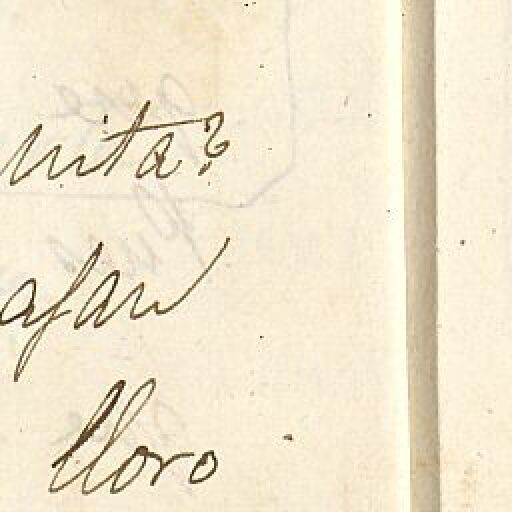 nita?
afan
lloro